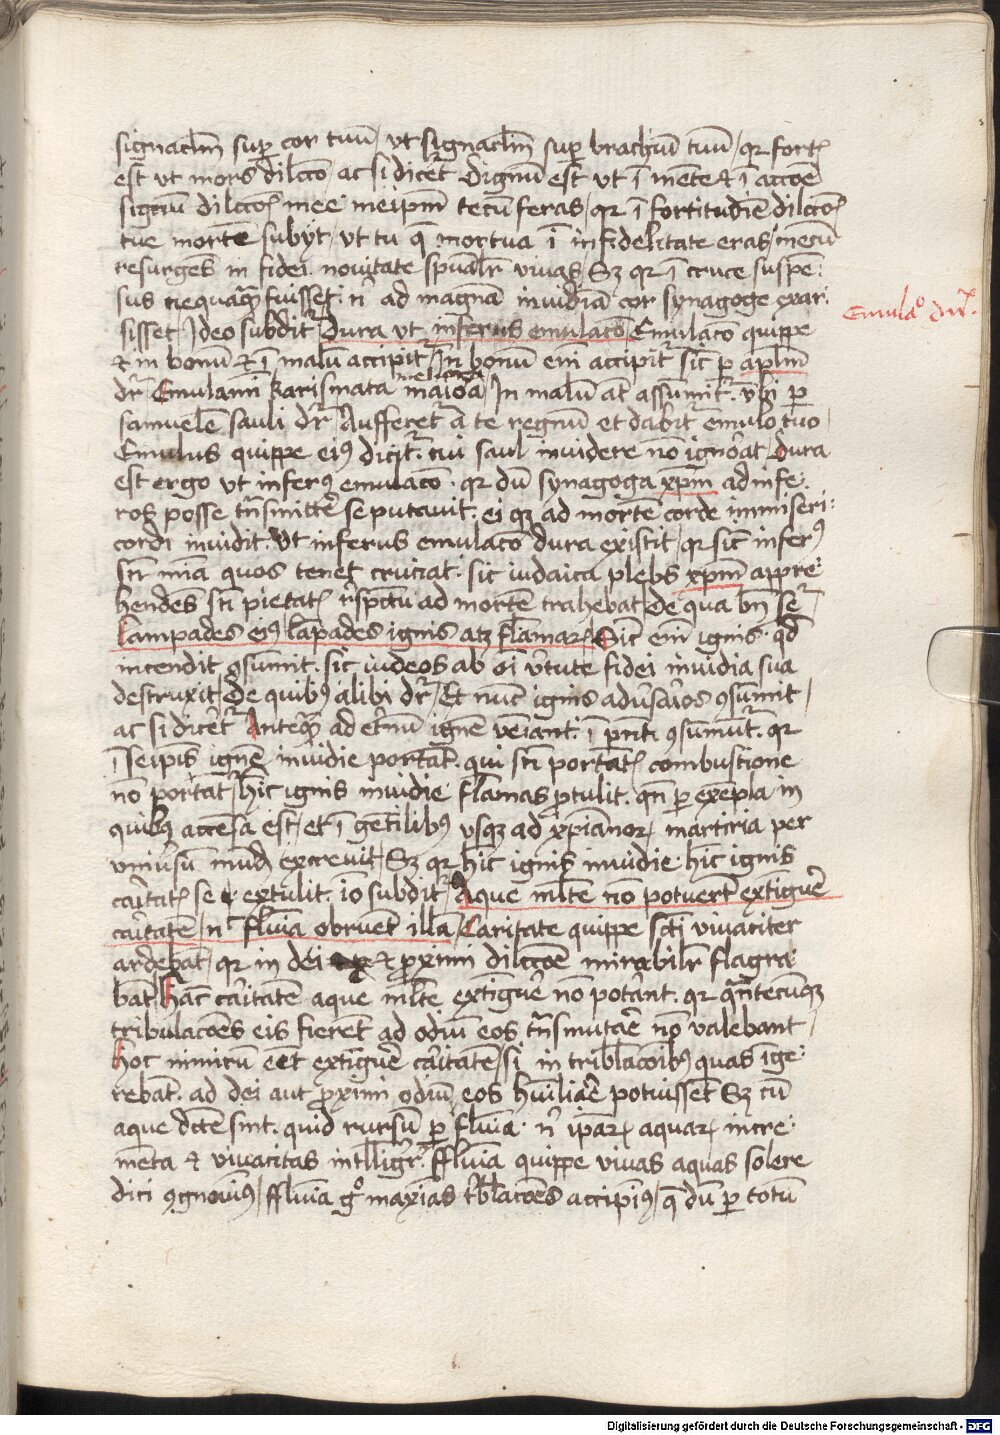 signaclm̄ suꝑ cor tuū / vt signaclm̄ suꝑ brachiū tuū / qr fortꝭ
est vt mors dilcc̄o / ac si dicēt Dignū est vt ī mēte et ī acc̄oe
signū dilcc̄oꝭ mee meipm̄ tecū feras / qr ī fortitudīe dilcc̄oꝭ
tue mortē subyt / vt tu q̄ mortua ī infidelitate eras / mecū
resurgēs in fidei nouitate spūalr̄ viuas / Sꝫ qr ī cruce suspē:
sus nequaq̄ꝫ fuisset: n̄ ad magnā inuidiā cor synagoge exar:
sisset / Ideo subditr̄ Dura vt inferus emulac̄o / Emulac̄o quippe
Emula͡o dr̄
et in bonū et ī malū accipitr̄ / In bonū em̄ accipitr̄ sic ꝑ aplm̄
dr̄ Emulamī karismata meliora maiora / In malū at̄ assumitr̄ vbi ꝑ
samuelē sauli dr̄ Aufferetr̄ a te regnū et dabitr̄ emulo tuo
Emulus quippe eiꝰ dicitr̄ cui saul inuidere nō ignōat / Dura
est ergo vt inferꝰ emulac̄o qr dū synagoga xp̄m ad infe:
ros posse tn̄smittē se putauit ei qꝫ ad mortē corde immiseri:
cordi inuidit. Vt inferus emulac̄o dura existit / qr sic inferꝰ
sn̄ mīa quos tenet cruciat. sic iudaica plebs xp̄m appre:
hendēs sn̄ pietatꝭ rn̄spc̄tu ad mortē trahebat / De qua bn̄ seꝛ̄
Lampades eiꝰ lāpades ignis atqꝫ flāmaꝝ / Sic em̄ ignis qd̄
incendit ꝯsumit. sic iudeos ab oī vtute fidei inuidia sua
destruxit / De quibꝰ alibi dr̄ / Et nūc ignis adūsarios ꝯsumit /
ac si dicēt Anteq̄ꝫ ad eternū ignē veniant ī pn̄ti ꝯsumūtr̄ qr
ī seipīs ignē inuidie portāt. qui sn̄ portātꝭ combustione
nō portat / hic ignis inuidie flāmas ꝓtulit. qn̄ ꝑ exēpla in
quibꝰ accēsa est / et ī getilibꝰ vsqꝫ ad xp̄ianoꝝ martiria per
vniūsū mūdū excreuit / Sꝫ qr hic ignis inuidie hic ignis
caritatꝭ se extulit. io subditr̄ / Aque mlt̄e nō potuert̄ extīguē
caitatē / n̄ flūīa obruent illā / Caritate quippe sct̄i viuaciter
ardebāt / qr in dei et ꝓximi dilcc̄oe mirabilr̄ flagra:
bāt / hāc caitatē aque mlt̄e extīguē nō potāt. qr quātecūqꝫ
tribulac̄oēs eis fierēt ad odiū eos tn̄smutaē nō valebant /
hoc nimirū eēt extīguē caitatē / si in triblac̄oibꝰ quas īge:
rebāt ad dei aut ꝓximi odiū eos hūiliaē potuissēt Sꝫ cū
aque dc̄te sint. quid rursū ꝑ flūīa n̄ ipaꝝ aquaꝝ incre:
mēta et viuacitas intelligr̄ fflūīa quippe viuas aquas solere
dici ꝯgnouiꝰ / fflūīa gͦ maxīas tblac̄oēs accipiꝰ / q̄ dū ꝑ totū
Digitalisierung gefördert durch die Deutsche Forschungsgemeinschaft - DFG